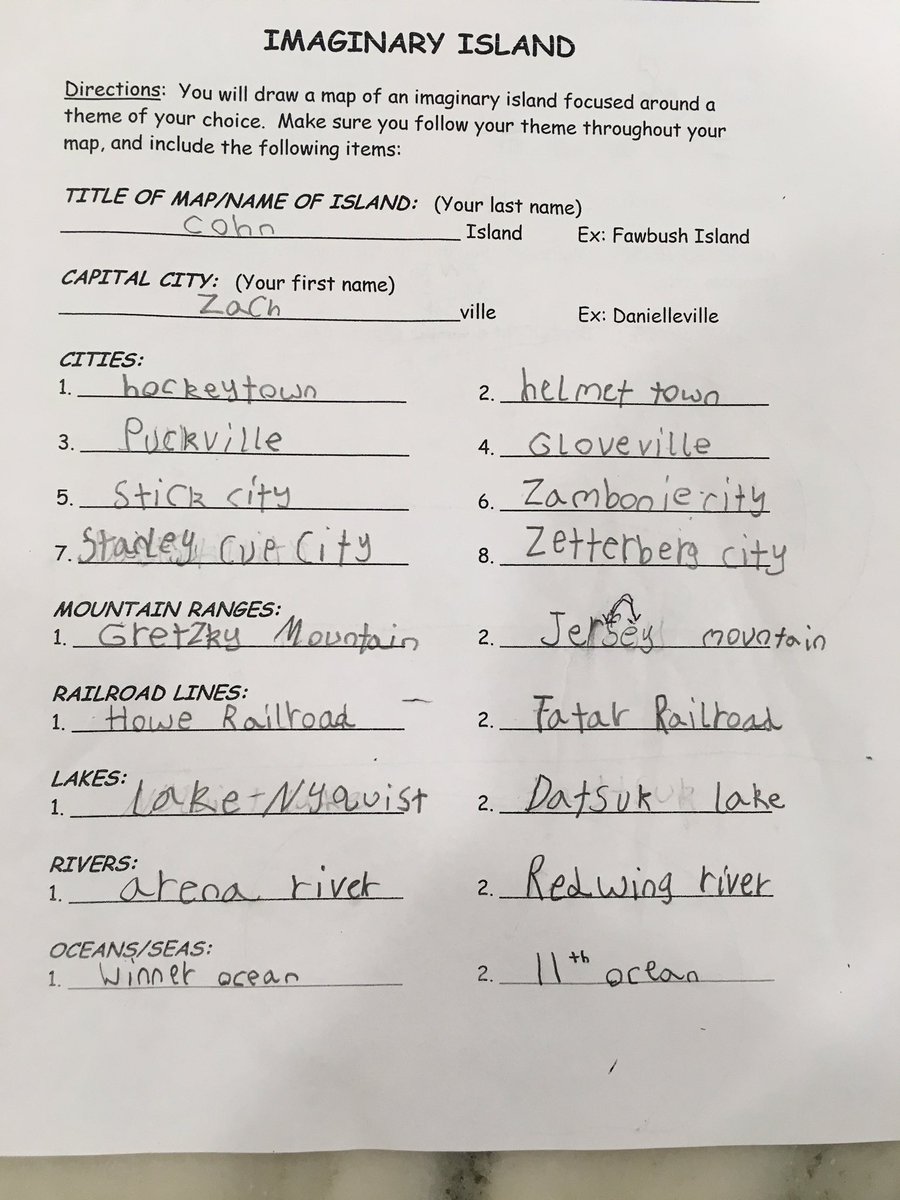 IMAGINARY ISLAND
Directions: You will draw a map of an imaginary island focused around a
theme of your choice. Make sure you follow your theme throughout your
map, and include the following items:
TITLE OF MAP/NAME OF ISLAND: (Your last name)
Cohn Island Ex: Fawbush Island
CAPITAL CITY: (Your first name)
Zach ville Ex: Danielleville
CITIES:
1. hockeytown 2. helmet town
3. Puckville 4. Gloveville
5. Stick city 6. Zambonie city
7. Stanley Cup City 8. Zetterberg city
MOUNTAIN RANGES:
1. Gretzky Mountain 2. Jersey mountain
RAILROAD LINES:
1. Howe Railroad 2. Tatar Railroad
LAKES:
1. Lake-Nyquist 2. Datsuk lake
RIVERS:
1. arena river 2. Redwing river
OCEANS/SEAS:
1. Winner ocean 2. 11th ocean